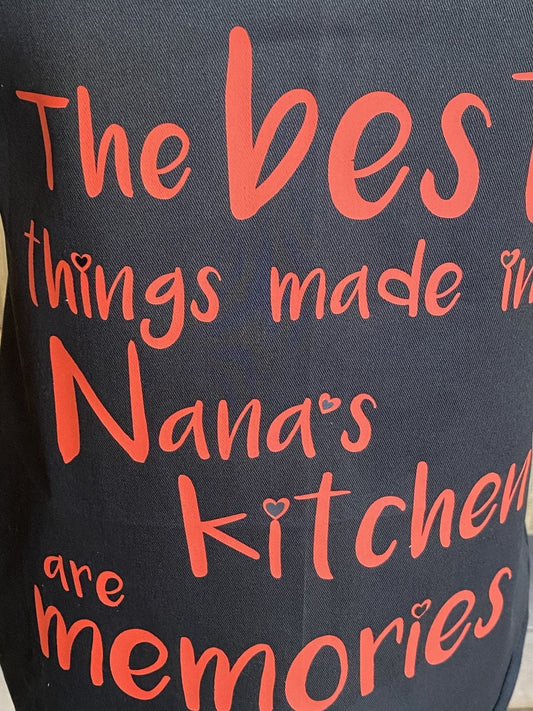 The best
things made in
Nana's
kitchen
are
memories